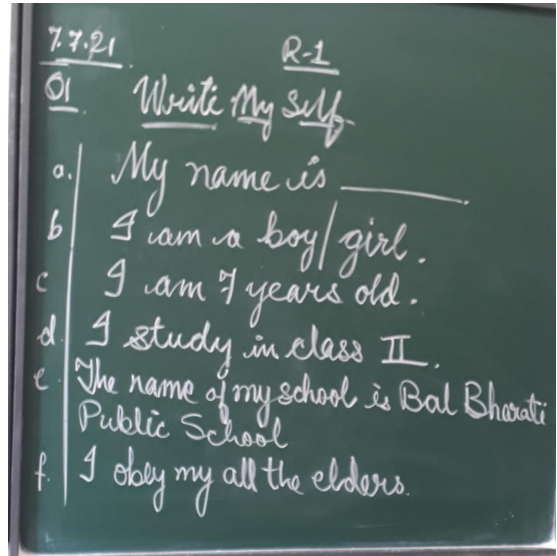 7.7.21 R-1
Q1 Write My Self
a. My name is ________
b I am a boy/girl.
c I am 7 years old.
d. I study in class II.
e. The name of my school is Bal Bharati
Public School
f. I obey my all the elders.